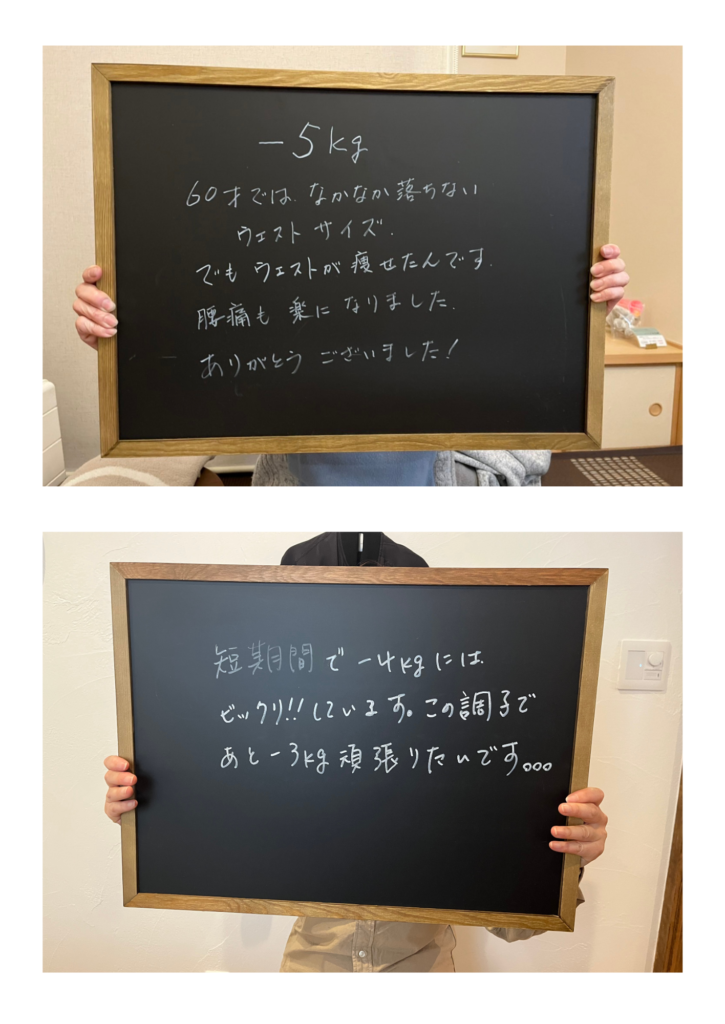 -5kg
60才では、なかなか落ちない
ウエストサイズ.
でもウエストが痩せたんです.
腰痛も楽になりました.
ありがとうございました!
短期間で-4kgには、
ビックリ!!しています。この調子で
あと-3kg頑張りたいです。。。